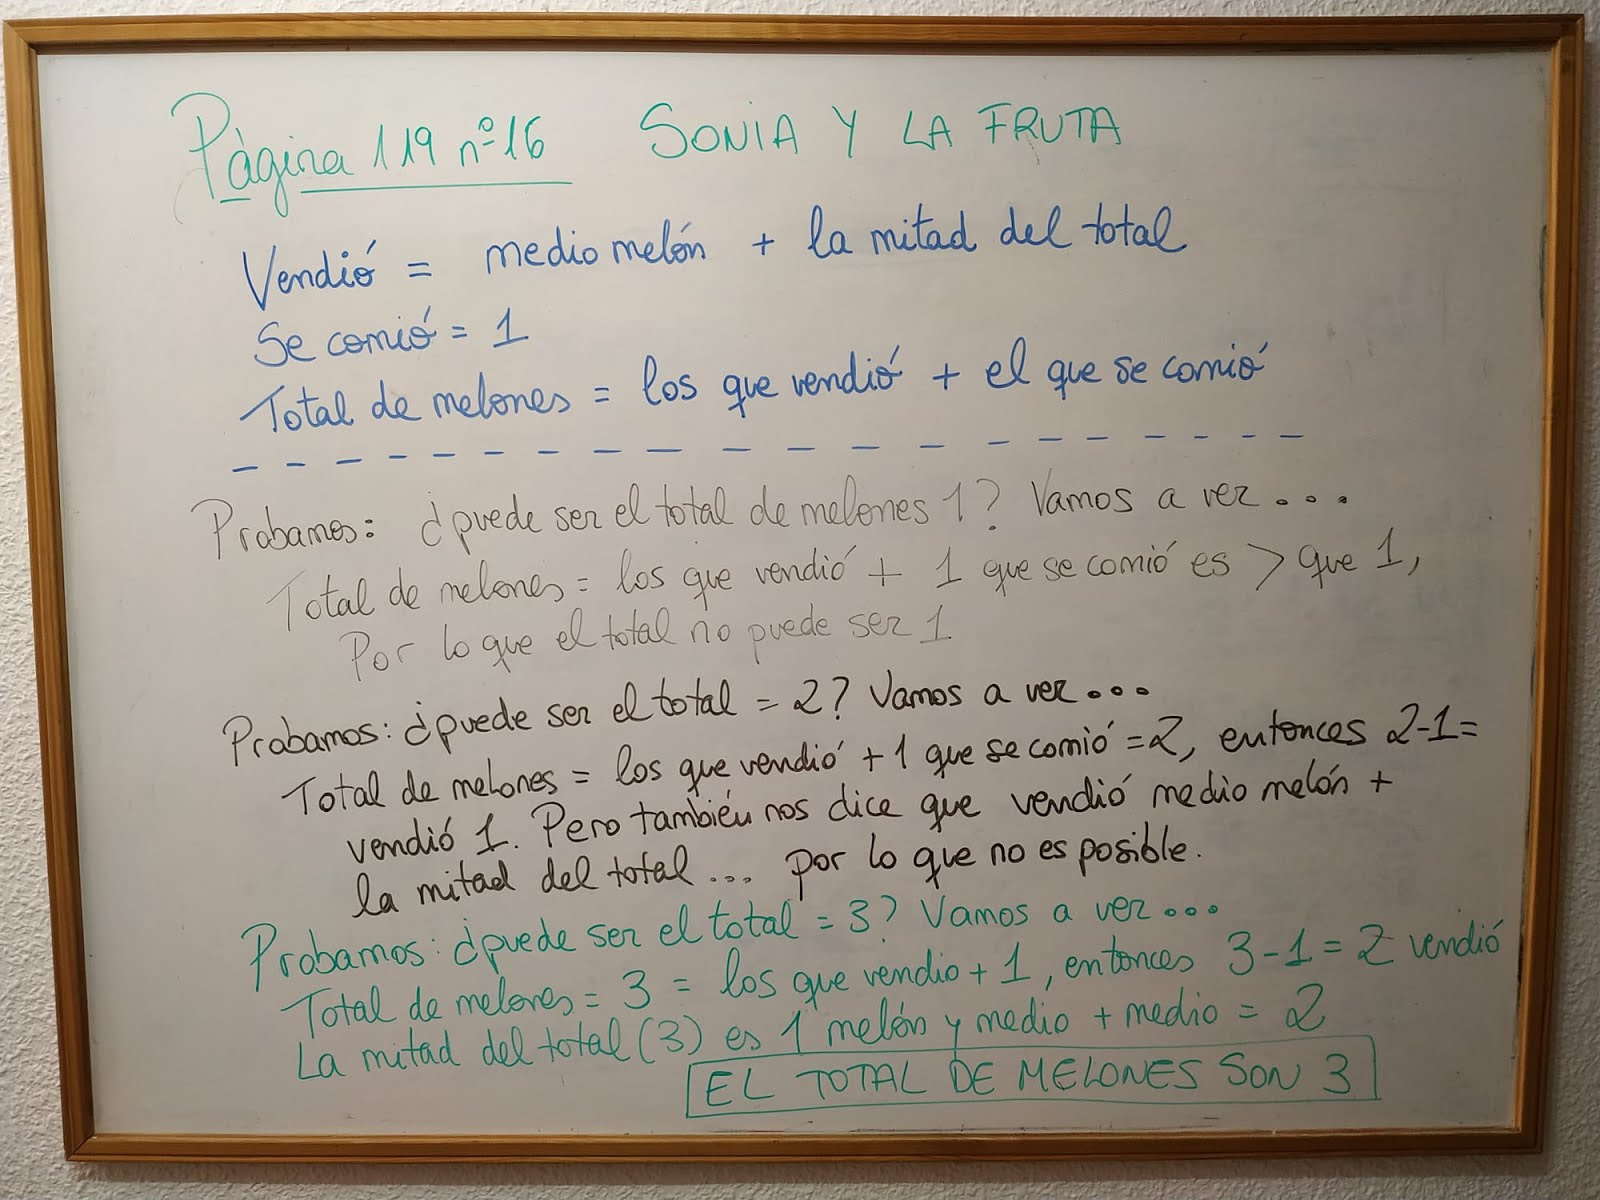 Página 119 nº16 SONIA Y LA FRUTA
Vendió = medio melón + la mitad del total
Se comió = 1
Total de melones = los que vendió + el que se comió
Probamos: ¿puede ser el total de melones 1? Vamos a ver...
Total de melones = los que vendió + 1 que se comió es > que 1,
Por lo que el total no puede ser 1
Probamos: ¿puede ser el total = 2? Vamos a ver...
Total de melones = los que vendió + 1 que se comió = 2, entonces 2-1=
vendió 1. Pero también nos dice que vendió medio melón +
la mitad del total... por lo que no es posible.
Probamos: ¿puede ser el total = 3? Vamos a ver...
Total de melones = 3 = los que vendio + 1, entonces 3-1 = 2 vendió
La mitad del total (3) es 1 melón y medio + medio = 2
EL TOTAL DE MELONES SON 3